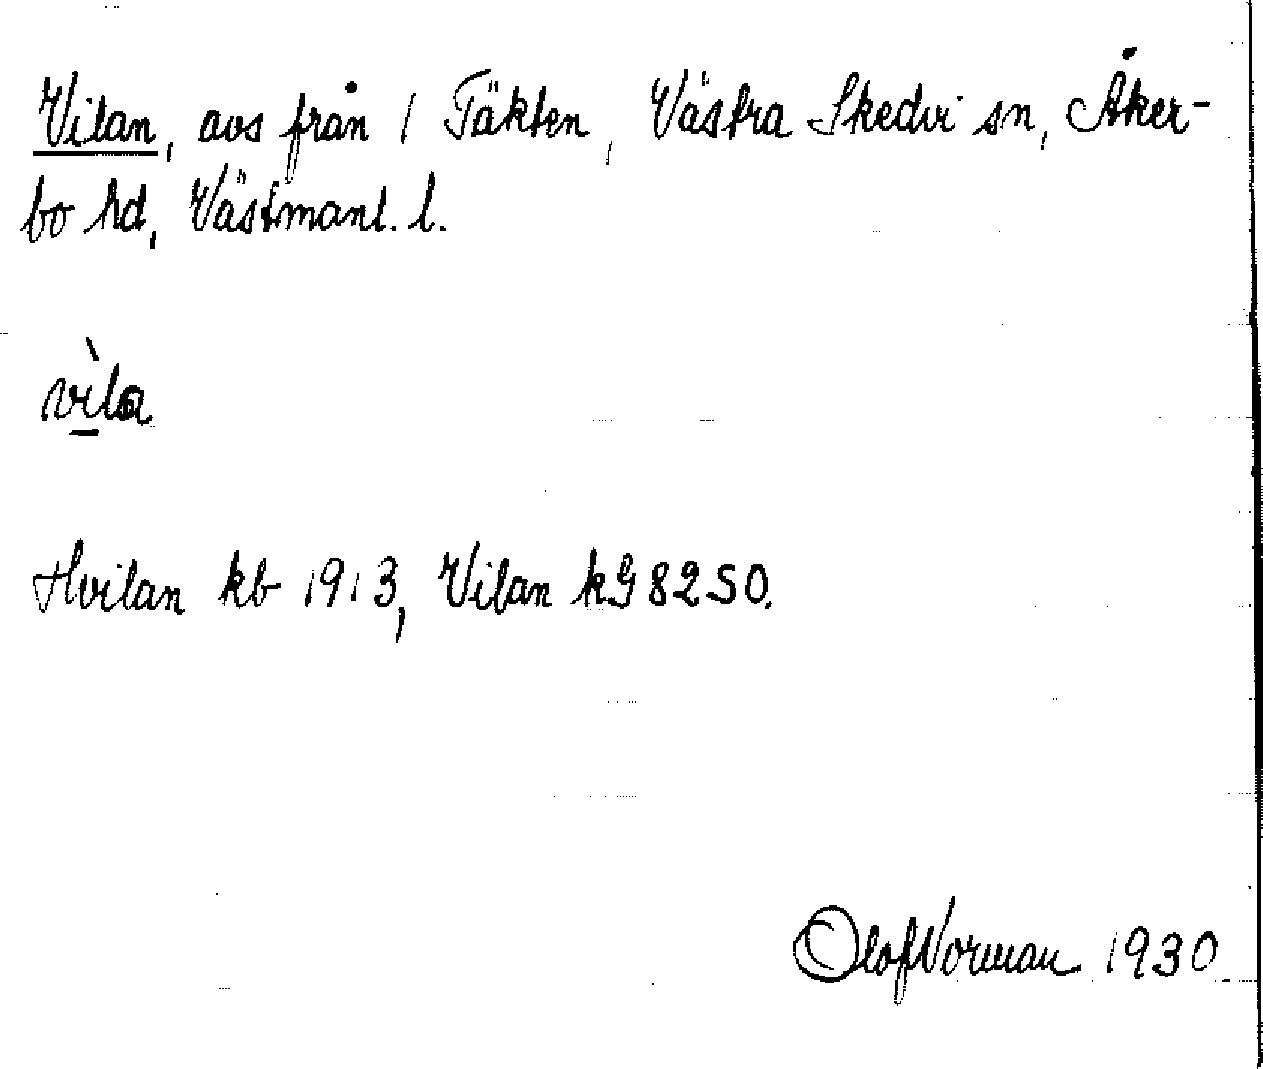 Vilan, avs från 1 Täkten, Västra Skedvi sn, Åker-
bo hd, Västmanl. l.
vì̲la
Hvilan kb 1913, Vilan kG 82SO.
Olof Norman 1930